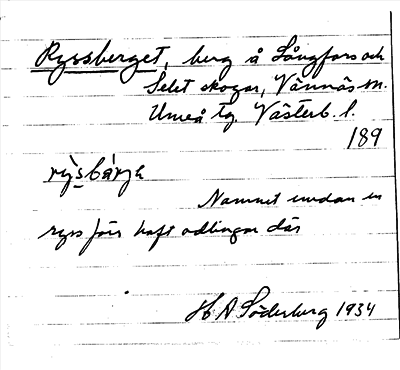 Ryssberget, berg å Långfors och
Selet skogar, Vännäs sn.
Umeå tg. Västerb. l.
189
rỳsbárjə
Namnet sedan en
ryss förr haft odlingar där
H A Söderberg 1934